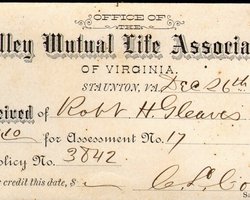 OFFICE OF
THE
lley Mutual Life Associa
OF VIRGINIA.
STAUNTON, VA. Dec 26th
eived of Robt H. Gleaves
10 for Assessment No. 17
olicy No. 3842
r credit this date, $